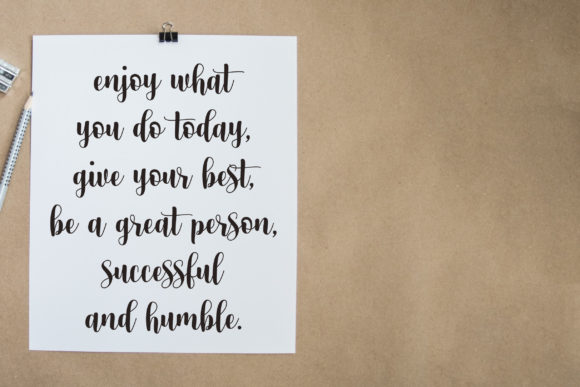 enjoy what
you do today,
give your best,
be a great person,
successful
and humble.